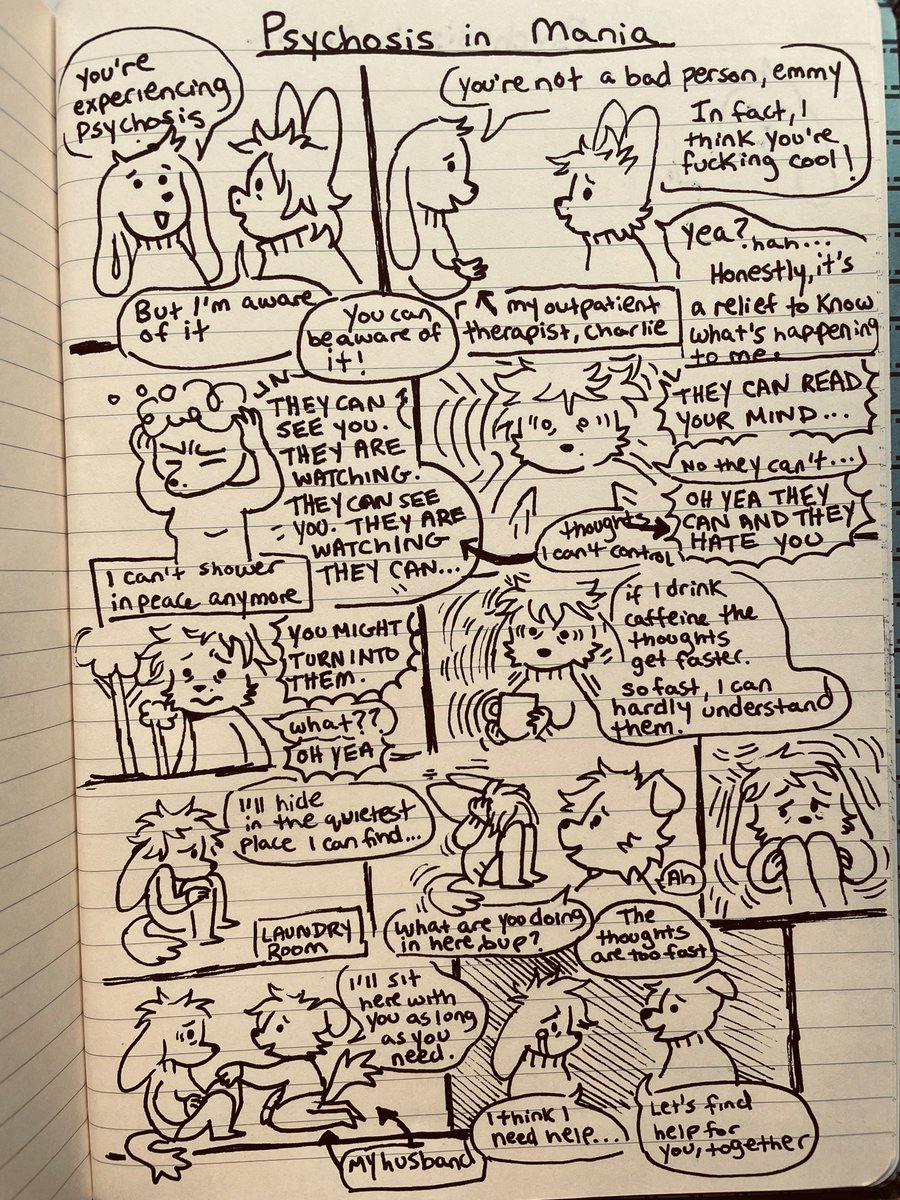 Psychosis in Mania
You're
experiencing
psychosis
But I'm aware
of it
You can
be aware of
it!
You're not a bad person, emmy
In fact, I
think you're
fucking cool!
my outpatient
therapist, Charlie
Yea?
hah...
Honestly, it's
a relief to know
what's happening
to me.
THEY CAN
SEE YOU.
THEY ARE
WATCHING.
THEY CAN SEE
YOU. THEY ARE
WATCHING
THEY CAN...
I can't shower
in peace anymore
THEY CAN READ
YOUR MIND...
No they can't...
OH YEA THEY
CAN AND THEY
HATE YOU
thoughts
I can't control
YOU MIGHT
TURN INTO
THEM.
what??
OH YEA
if I drink
caffeine the
thoughts
get faster.
so fast, I can
hardly understand
them.
I'll hide
in the quietest
place I can find...
LAUNDRY
ROOM
What are you doing
in here, bup?
Ah
The
thoughts
are too fast
I'll sit
here with
you as long
as you
need.
My husband
I think I
need help...
Let's find
help for
you, together